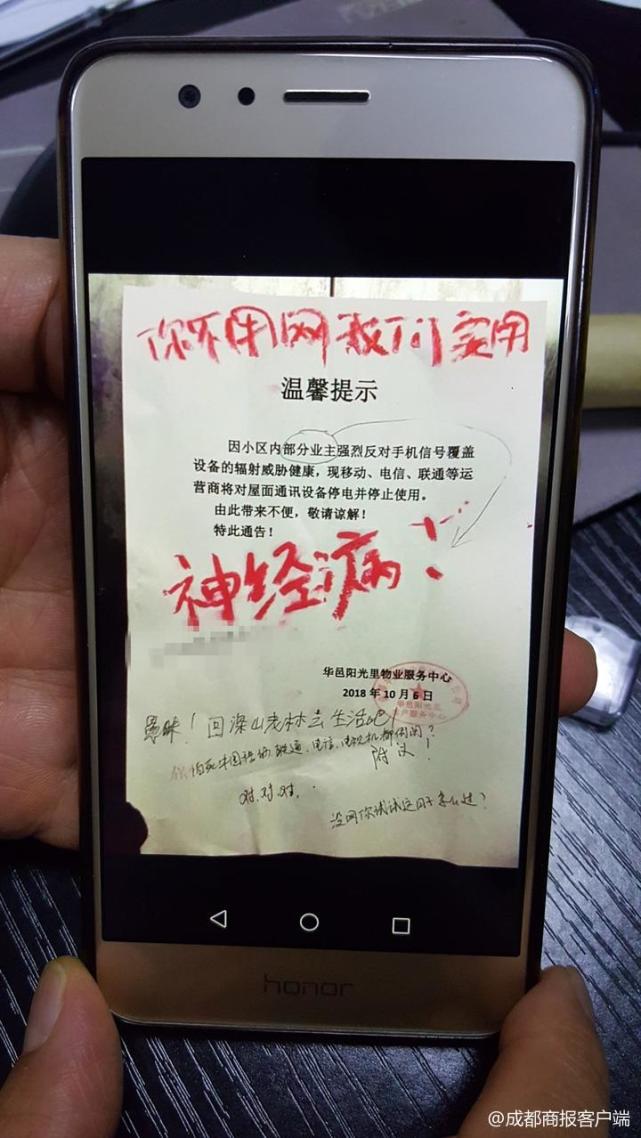 你不用网我们要用
温馨提示
因小区内部分业主强烈反对手机信号覆盖
设备的辐射威胁健康，现移动、电信、联通等运
营商将对屋面通讯设备停电并停止使用。
由此带来不便，敬请谅解！
特此通告！
神经病！
华邑阳光里物业服务中心
2018年10月6日
华邑阳光里
愚昧！回深山老林去生活吧！
附议！
对.对.对.
没网你试试这日子怎么过？
honor
@成都商报客户端